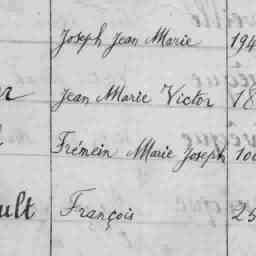 Joseph Jean Marie 194
Jean Marie Victor 18
Frémein Marie Joseph 100
ult François 25